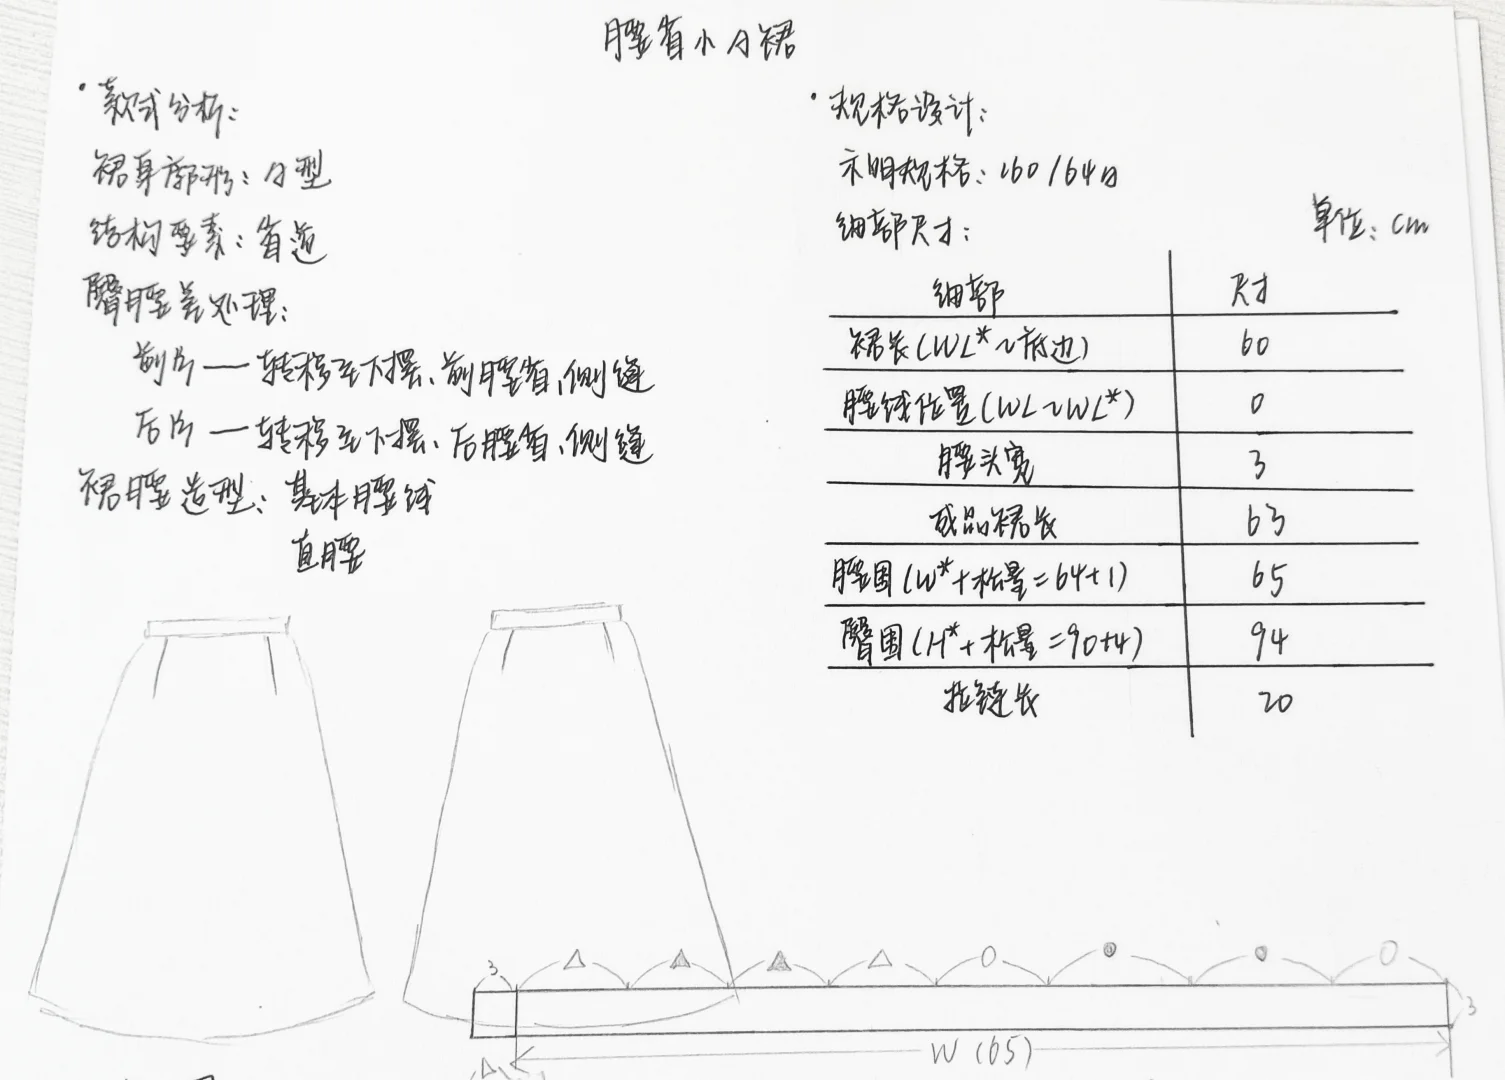 腰省小A裙
·款式分析:
裙身廓形:A型
结构要素:省道
臀腰差处理:
前片——转移至下摆、前腰省、侧缝
后片——转移至下摆、后腰省、侧缝
裙腰造型:基本腰线
直腰
·规格设计:
示明规格:160/64A
细部尺寸:
单位:cm
细部 尺寸
裙长(WL*~底边) 60
腰线位置(WL~WL*) 0
腰头宽 3
成品裙长 63
腰围(W*+松量=64+1) 65
臀围(H*+松量=90+4) 94
拉链长 20
3 △ ▲ ▲ △ ○ ● ● ○
3
W(65)
△